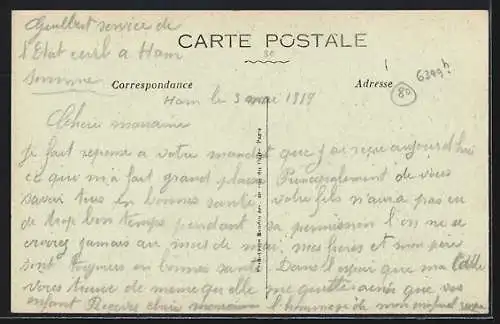 Guilbert service de
l'Etat civil a Ham
Somme
CARTE POSTALE
80
Correspondance
Adresse
1
6399h
80
Ham le 3 mai 1919
Chere marraine
Je fait reponse a votre mandat que j'ai reçue aujourd'hui
ce que m'a fait grand plaisir Principalement de vous
savoir tous en bonnes santé votre fils n'aura pas eu
de trop bon temps pendant sa permission l'on ne se
croirez jamais au mois de mai mes freres et mon pere
sont toujours en bonnes santé Dans l'espoir que ma carte
vous trouve de meme que elle me quitte ainsi que vos
enfant Recevez chere marraine l'hommage de mon